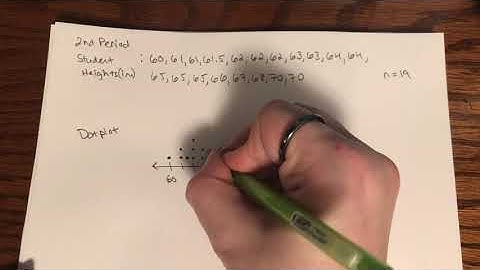 2nd Period
Student : 60, 61, 61, 61.5, 62, 62, 62, 63, 63, 64, 64,
Heights(in) 65, 65, 65, 66, 67, 68, 70, 70 n=19
Dotplot
60